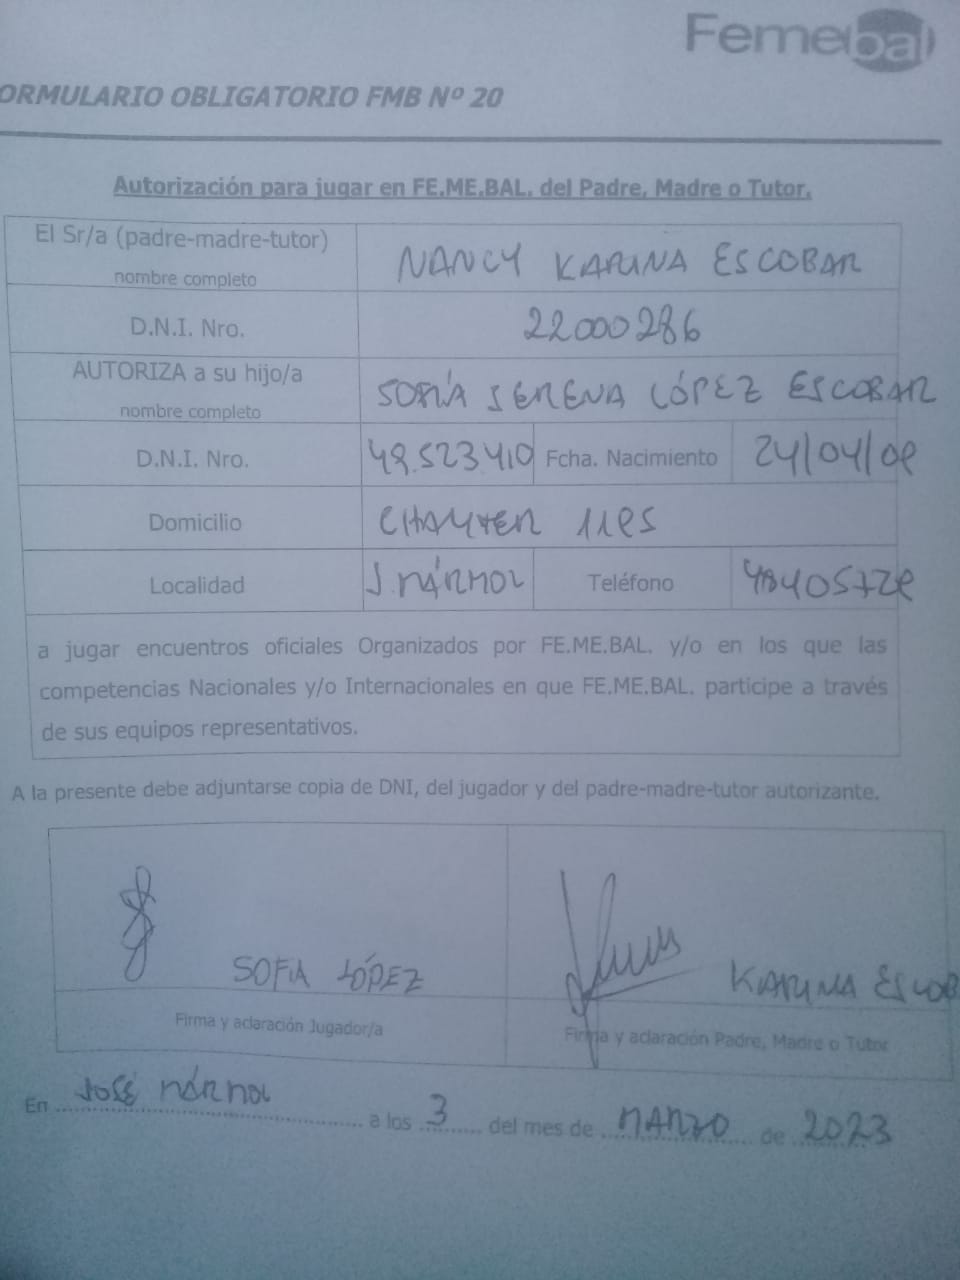 Femebal
ORMULARIO OBLIGATORIO FMB Nº 20
Autorización para jugar en FE.ME.BAL. del Padre, Madre o Tutor.
El Sr/a (padre-madre-tutor)
nombre completo
NANCY KARINA ESCOBAR
D.N.I. Nro.
22000286
AUTORIZA a su hijo/a
nombre completo
SOFÍA SERENA LÓPEZ ESCOBAR
D.N.I. Nro. 48.523.410 Fcha. Nacimiento 24/04/08
Domicilio
Localidad J. MÁRMOL Teléfono
a jugar encuentros oficiales Organizados por FE.ME.BAL. y/o en los que las
competencias Nacionales y/o Internacionales en que FE.ME.BAL. participe a través
de sus equipos representativos.
A la presente debe adjuntarse copia de DNI, del jugador y del padre-madre-tutor autorizante.
SOFIA LÓPEZ
KARINA ESCOB
Firma y aclaración Jugador/a
Firma y aclaración Padre, Madre o Tutor
En JOSÉ MÁRMOL a los 3 del mes de MARZO de 2023